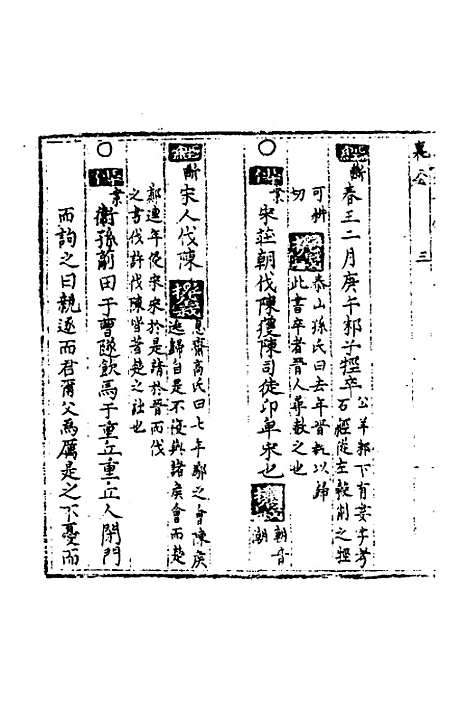 襄公 三
經 斷 春王二月庚午邾子牼卒 公羊邾下有婁字考
石經從左削之牼
可辨
切
泰山孫氏曰去年晉執以歸
此書卒者晉人尋赦之也
○傳 案 宋莊朝伐陳獲陳司徒卬卑宋也 朝音
朝
經 斷 宋人伐陳 息齋高氏曰七年鄬之會陳侯
逃歸自是不復與諸侯會而楚
鄭連年侵宋宋於是請於晉而伐
之書伐許伐陳皆著楚之詘也
○傳 案 衛孫蒯田于曹隧飲馬于重丘重丘人閉門
而訽之曰親逐而君爾父為厲是之不憂而